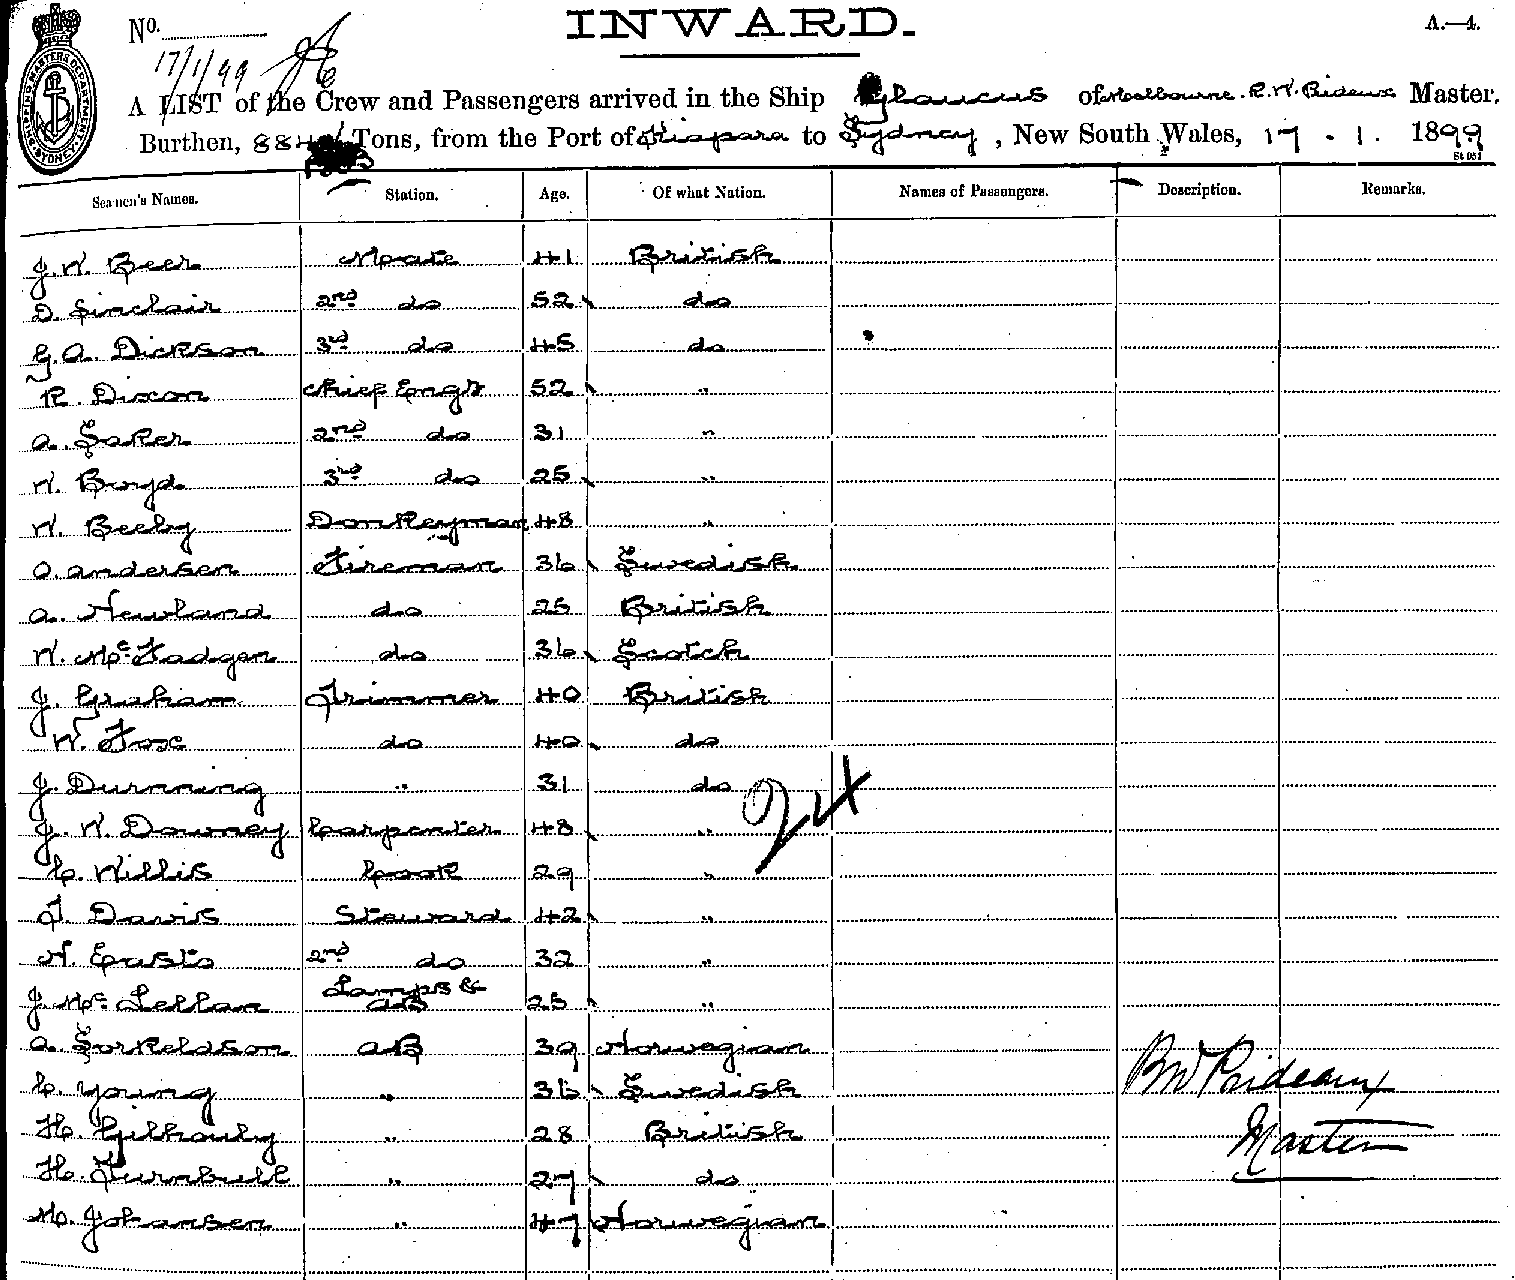 INWARD.
A.—4.
No.
17/1/99
SHIPPING MASTERS DEPARTMENT SYDNEY
A LIST of the Crew and Passengers arrived in the Ship Glaucus of Melbourne. R. W. Rideux Master.
Burthen, 884 Tons, from the Port of Kiapara to Sydney, New South Wales, 17 . 1. 1899
St 051
Seamen's Names. Station. Age. Of what Nation. Names of Passengers. Description. Remarks.
J. W. Beer Mate 41 British
D. Sinclair 2nd do 52 do
G. A. Dickson 3rd do 45 do
R. Dixon Chief Engr 52 "
A. Saker 2nd do 31 "
W. Boyd 3rd do 25 "
W. Beeby Donkeyman 48 "
O. Andersen Fireman 36 Swedish
A. Newland do 25 British
W. McFadgen do 36 Scotch
J. Graham Trimmer 40 British
W. Fox do 40 do
J. Durning " 31 do
24
J. W. Downey Carpenter 48 "
C. Willis Cook 29 "
T. Davis Steward 42 "
H. 2nd do 32 "
J. McLellan Lamps & AB 25 "
A. Torkeldson AB 39 Norwegian
C. Young " 36 Swedish
H. " 28 British
H. Turnbull " 27 do
M. Johansen " 47 Norwegian
RW Prideaux
Master